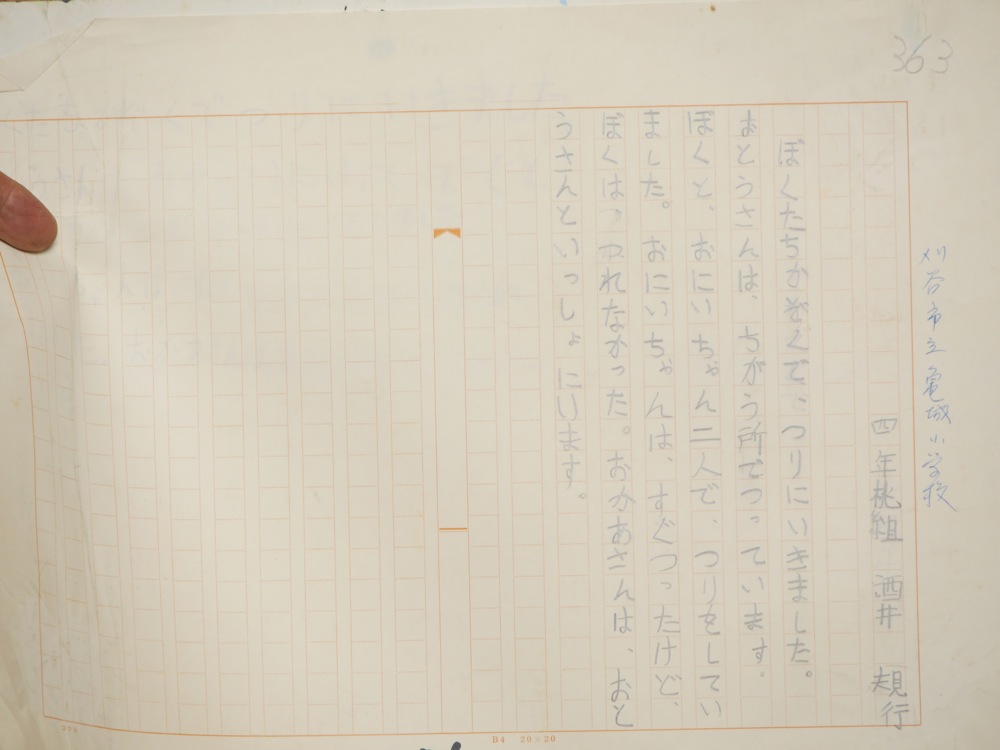 363
刈谷市立亀城小学校
四年桃組　酒井　規行
ぼくたちかぞくで、つりにいきました。
おとうさんは、ちがう所でつっています。
ぼくと、おにいちゃん二人で、つりをしてい
ました。おにいちゃんは、すぐつったけど、
ぼくはつれなかった。おかあさんは、おと
うさんといっしょにいます。
B4 20×20